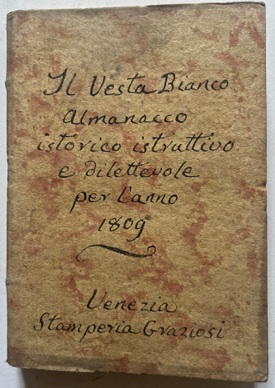 Il Vesta Bianco
Almanacco
istorico istruttivo
e dilettevole
per l'anno
1809
Venezia
Stamperia Graziosi